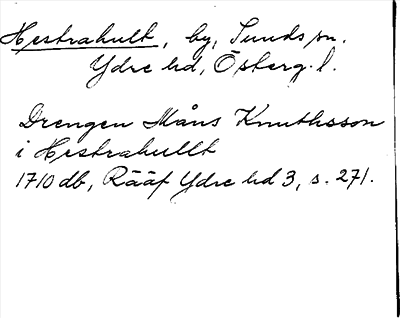 Hestrahult, by, Sunds sn.
Ydre hd, Österg. l.
Drengen Måns Knuthsson
i Hestrahullt
1710 db, Rääf Ydre hd 3, s. 271.